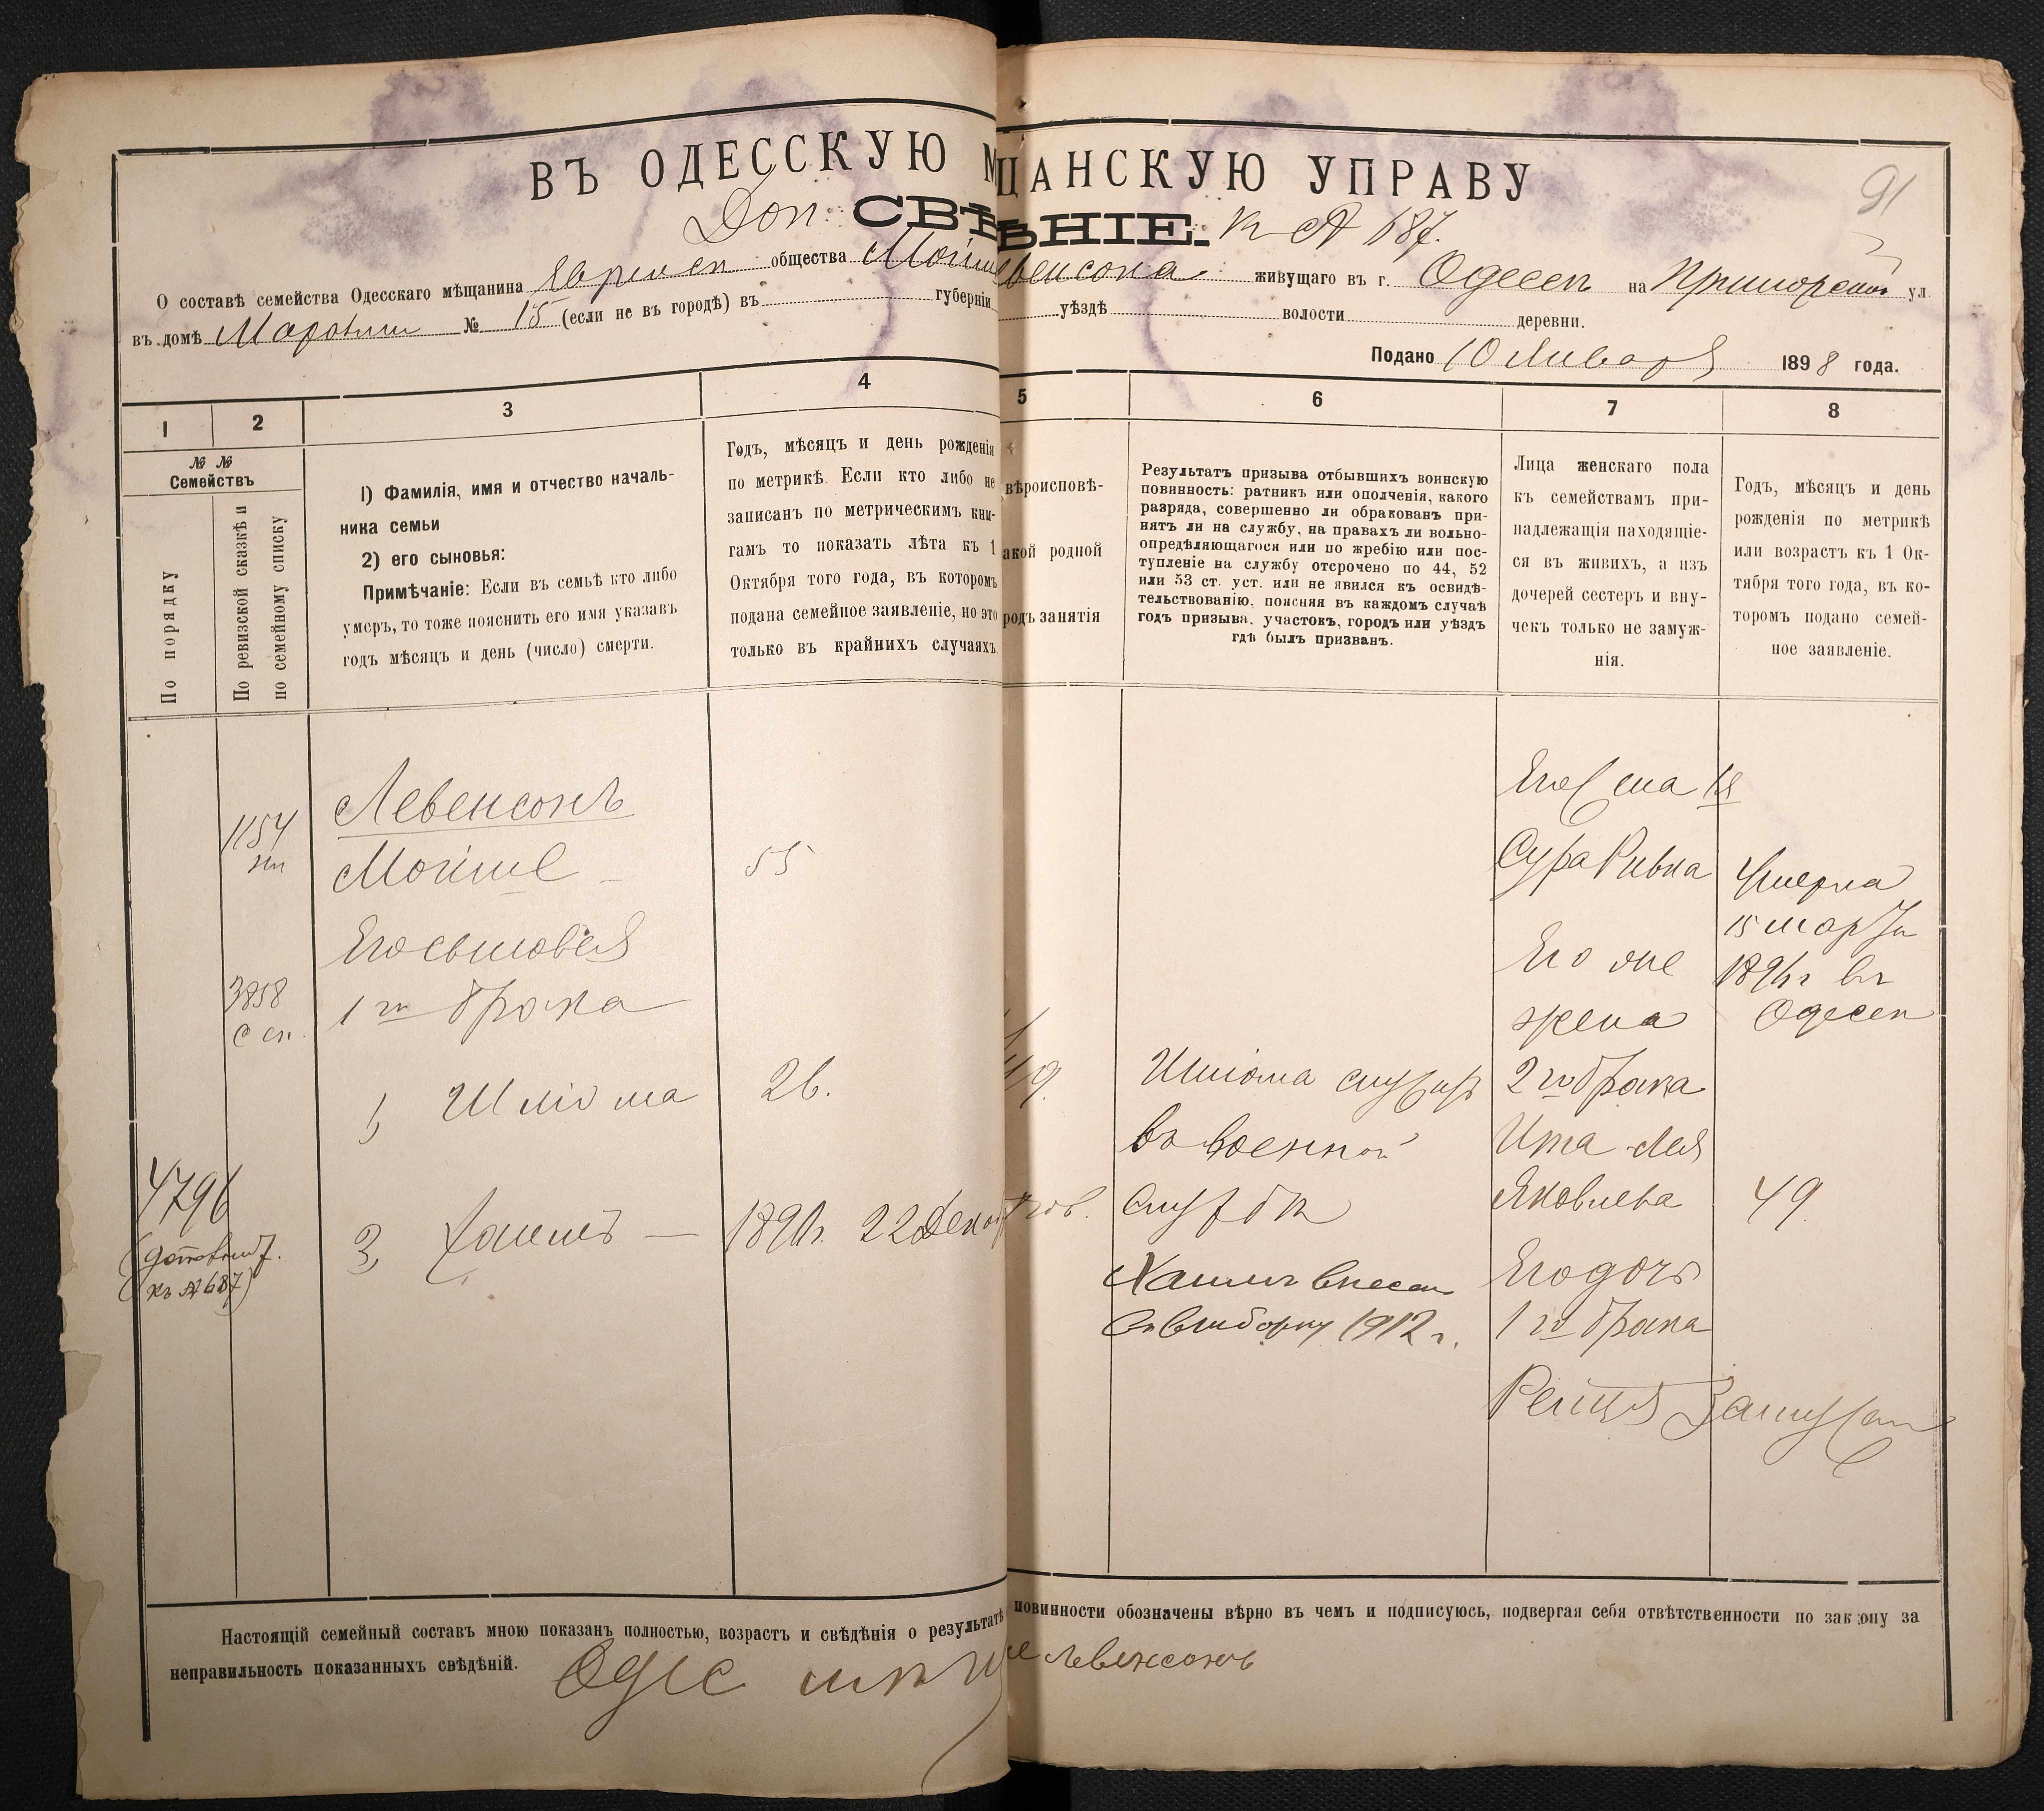 91
ВЪ ОДЕССКУЮ М ЩАНСКУЮ УПРАВУ
Доп. СВѢ ѢНІЕ. к № 687.
О составѣ семейства Одесскаго мѣщанина общества Мойш Левенсона живущаго въ г. Одессѣ на Приморской ул.
въ домѣ № 15 (если не въ городѣ) въ губерніи уѣздѣ волости деревни.
Подано 10 Января 1898 года.
1 2 3 4 5 6 7 8
№ № Семействъ
По порядку
По ревизской сказкѣ и
по семейному списку
1) Фамилія, имя и отчество началь-
ника семьи
2) его сыновья:
Примѣчаніе: Если въ семьѣ кто либо
умеръ, то тоже пояснить его имя указавъ
годъ мѣсяцъ и день (число) смерти.
Годъ, мѣсяцъ и день рожденія
по метрикѣ. Если кто либо не
записанъ по метрическимъ кни-
гамъ то показать лѣта къ 1
Октября того года, въ которомъ
подана семейное заявленіе, но это
только въ крайнихъ случаяхъ.
вѣроисповѣ-
акой родной
родъ занятія
Результатъ призыва отбывшихъ воинскую
повинность: ратникъ или ополченія, какого
разряда, совершенно ли обракованъ при-
нятъ ли на службу, на правахъ ли вольно-
опредѣляющагося или по жребію или пос-
тупленіе на службу отсрочено по 44, 52
или 53 ст. уст. или не явился къ освидѣ-
тельствованію, поясняя въ каждомъ случаѣ
годъ призыва, участокъ, городъ или уѣздъ
гдѣ былъ призванъ.
Лица женскаго пола
къ семействамъ при-
надлежащія находящіе-
ся въ живихъ, а изъ
дочерей сестеръ и вну-
чекъ только не замуж-
нія.
Годъ, мѣсяцъ и день
рожденія по метрикѣ
или возрастъ къ 1 Ок-
тября того года, въ ко-
торомъ подано семей-
ное заявленіе.
1154
3858
С сп.
4796
к № 687)
Левенсонъ
Мойше
Его сыновья
1го брака
1, Шліома
3, Хаимъ
55
26.
189 г. 22 Декаб
Шліома служитъ
въ военной
службѣ
Хаимъ внесен
въ выборку 1912 г.
Сура Ривка
Его же
жена
2го брака
Ита-Лея
Яковлева
Его дочь
1го брака
Рейзя Замужем
Умерла
15 марта
1896 г въ
Одессѣ
49
Настоящій семейный составъ мною показанъ полностью, возрастъ и свѣдѣнія о результатѣ повинности обозначены вѣрно въ чемъ и подписуюсь, подвергая себя отвѣтственности по закону за
неправильность показанныхъ свѣдѣній.
Одес Левенсонъ